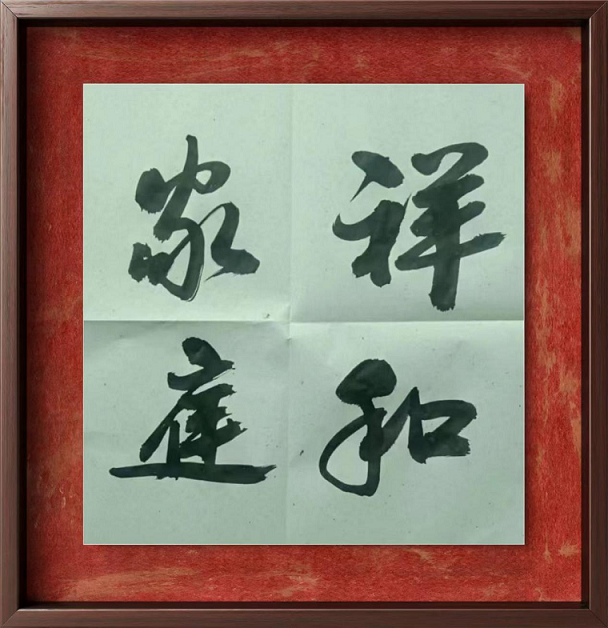 祥和
家庭